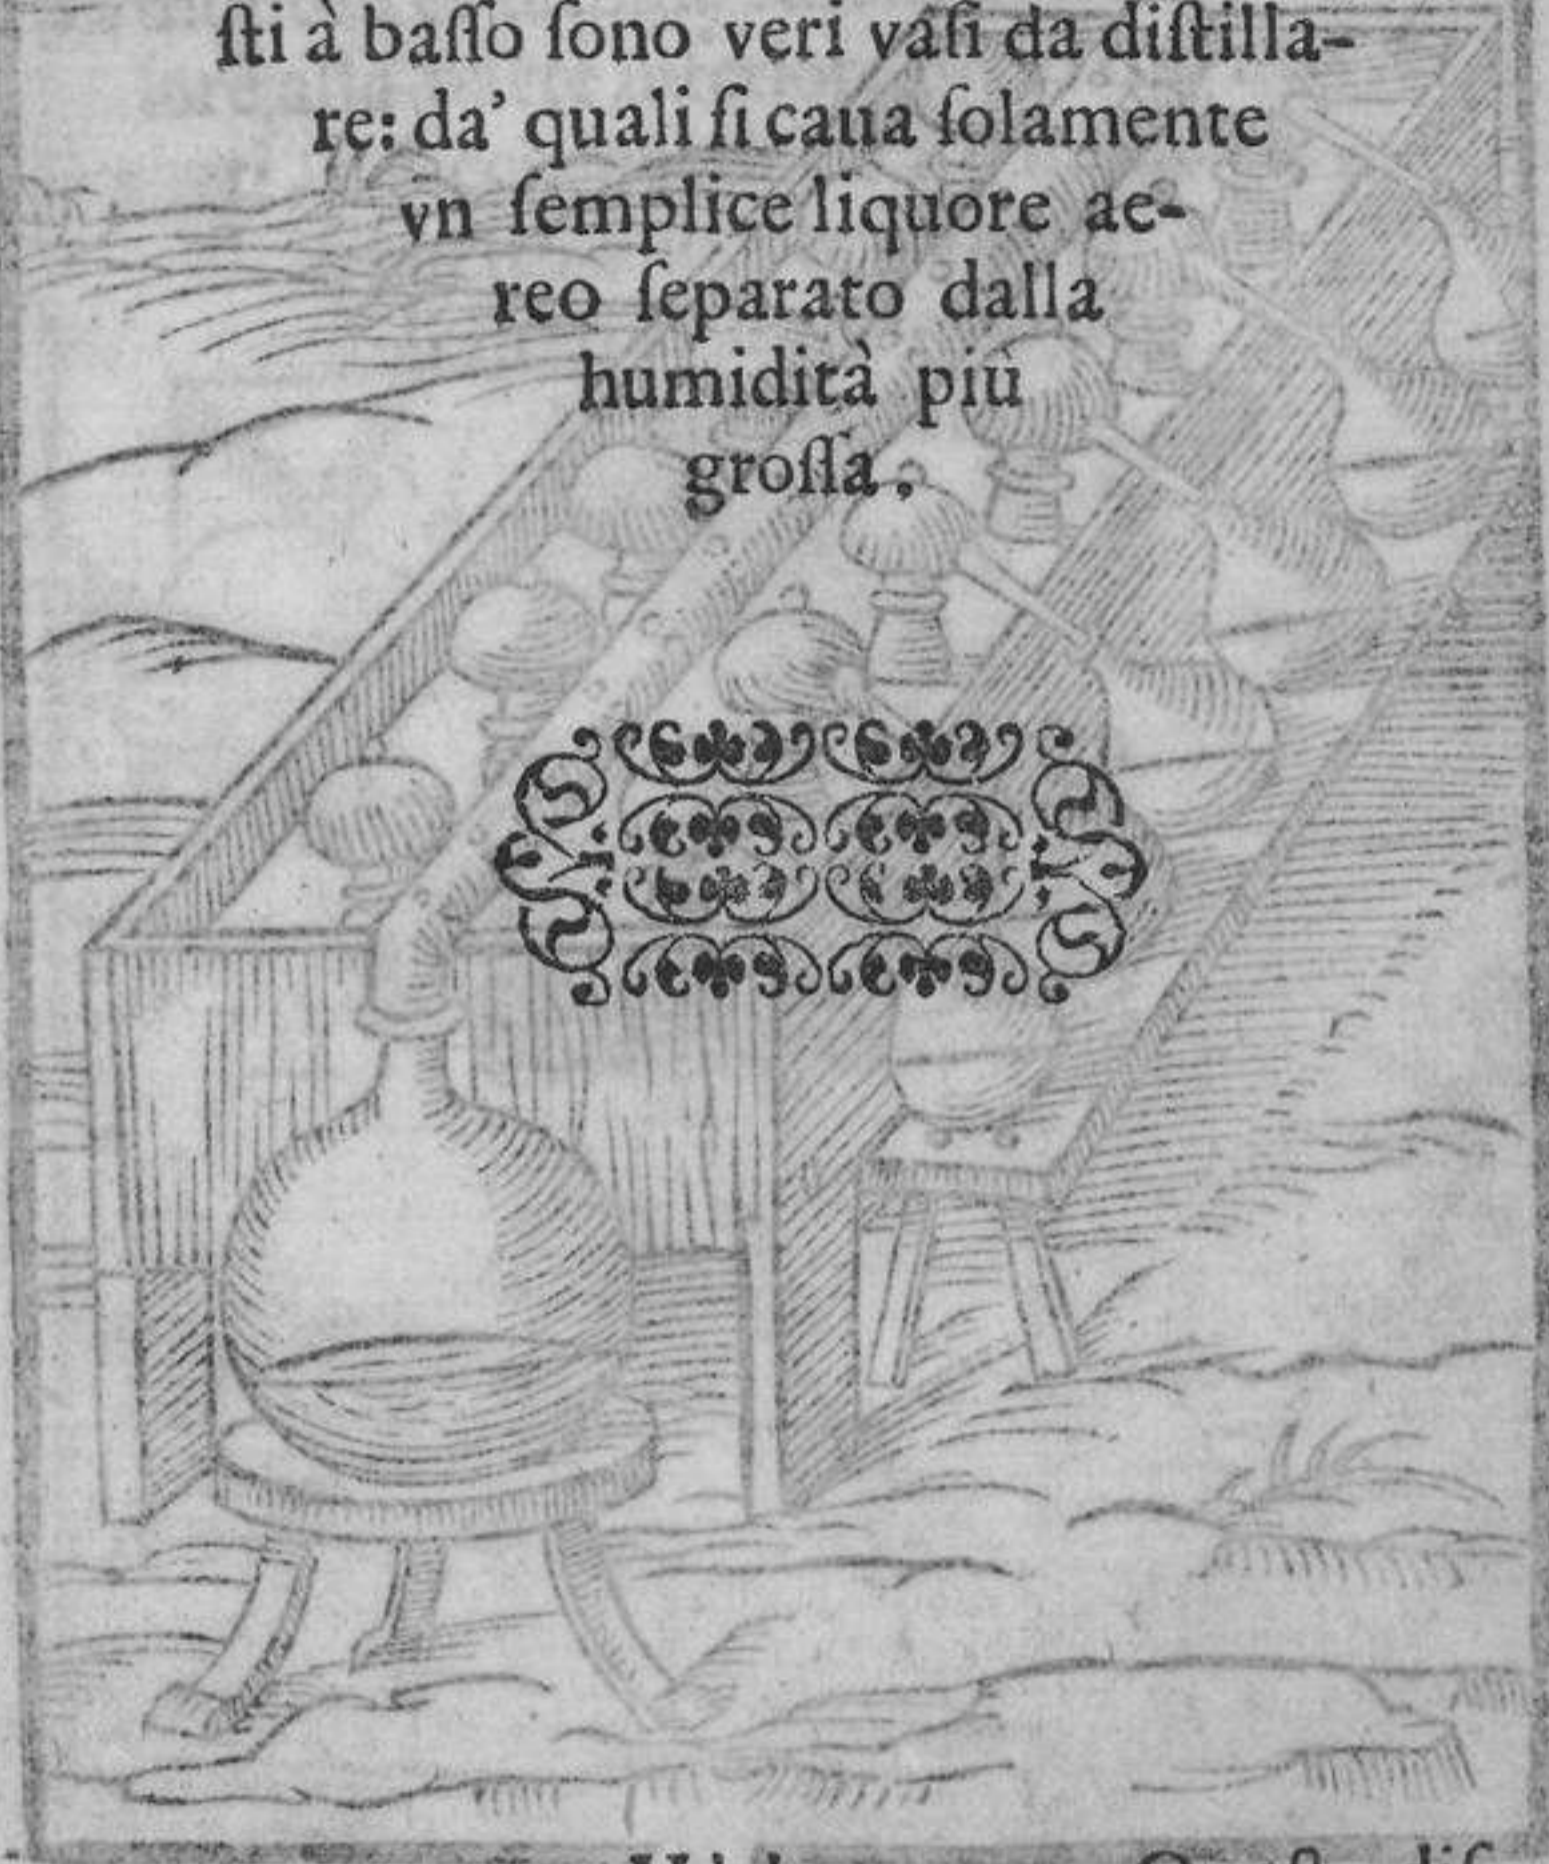 ſti à baſſo ſono veri vaſi da diſtilla-
re: da’ quali ſi caua ſolamente
vn ſemplice liquore ae-
reo ſeparato dalla
humidità più
groſſa.